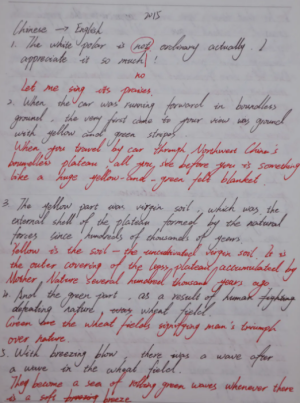 2015
Chinese → English
1. The white polar is not ordinary actually. I
appreciate it so much!
no
Let me sing its praises.
2. When the car was running forward in boundless
ground, the very first came to your view was ground
with yellow and green stripes
When you travel by car through Northwest China's
boundless plateau, all you see before you is something
like a huge yellow-and-green felt blanket.
3. The yellow part was virgin soil, which was the
external shell of the plateau formed by the natural
forces since hundreds of thousands of years.
Yellow is the soil — the uncultivated virgin soil. It is
the outer covering of the loess plateau accumulated by
Mother Nature several hundred thousand years ago
4. And the green part, as a result of human fighting
defeating nature, wheat field.
Green are the wheat fields signifying man's triumph
over nature.
5. With breezing blow, there was a wave after
a wave in the wheat field.
They become a sea of rolling green waves whenever there
is a soft breeze